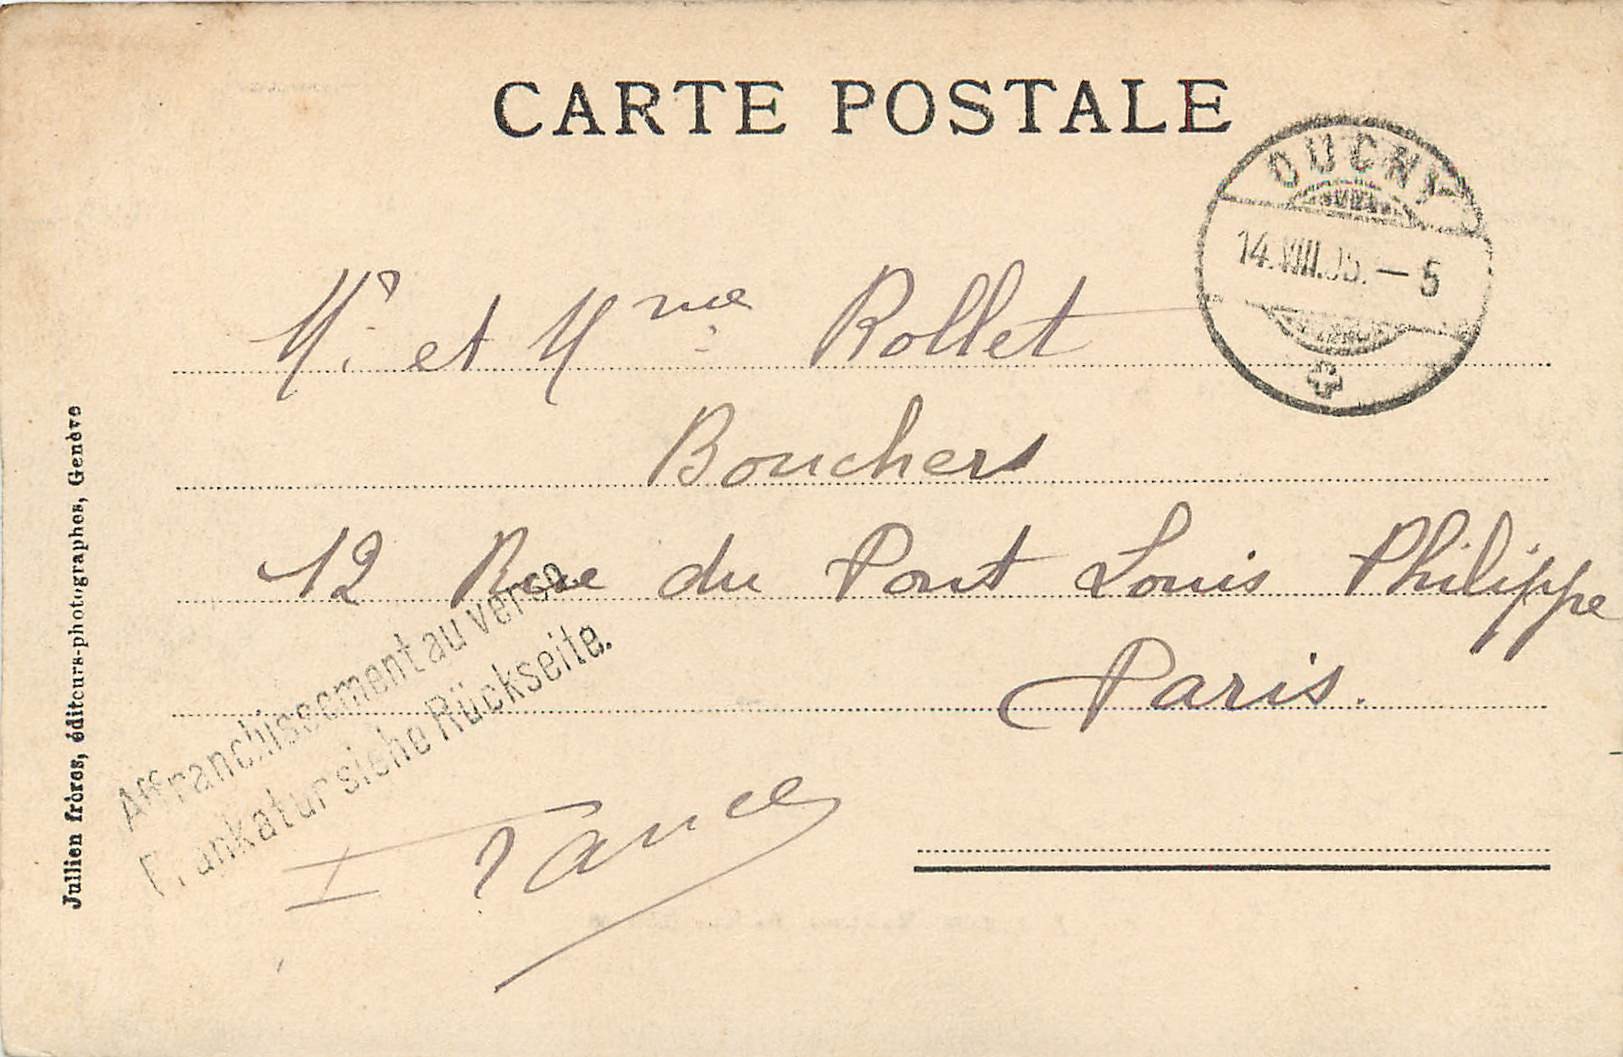 CARTE POSTALE
OUCHY
14.VIII.05.—5
Mr. et Mme Rollet
Bouchers
12 Rue du Pont Louis Philippe
Paris.
France
Affranchissement au verso.
Frankatur siehe Rückseite.
Jullien frères, éditeurs-photographes, Genève